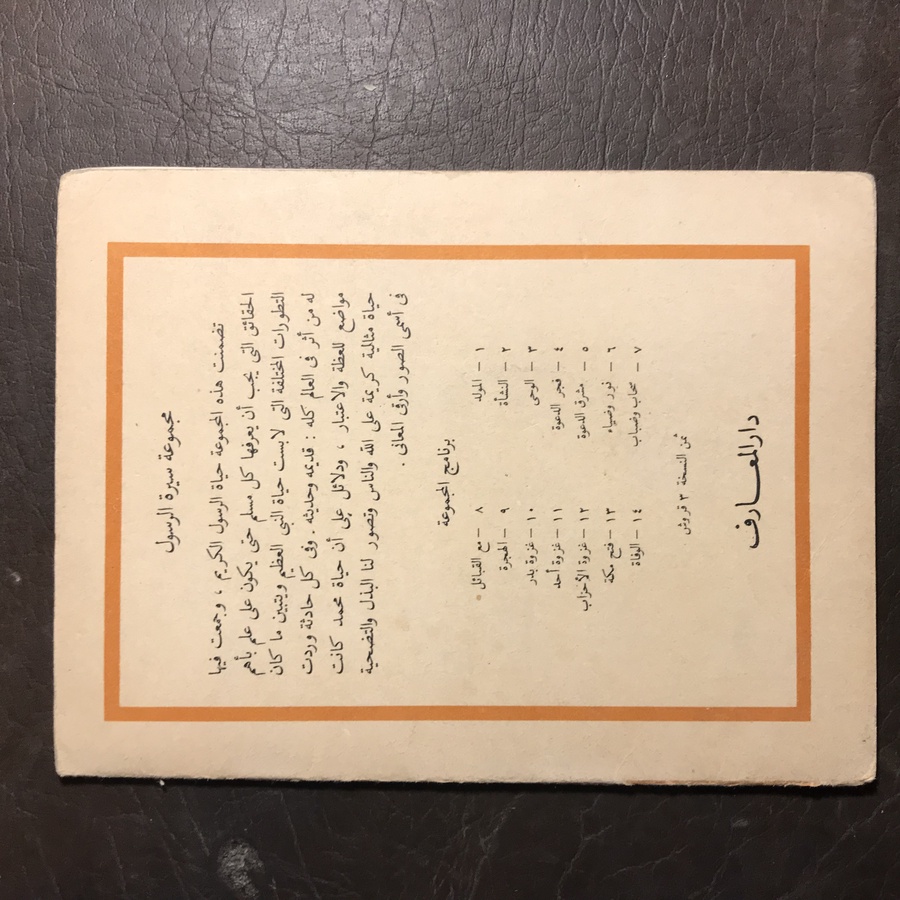 مجموعة سيرة الرسول
تضمنت هذه المجموعة حياة الرسول الكريم ، وجمعت فيها
الحقائق التى يجب أن يعرفها كل مسلم حتى يكون على علم بأهم
التطورات المختلفة التى لابست حياة النبى العظيم ويتبين ما كان
له من أثر فى العالم كله : قديمه وحديثه . وفى كل حادثة وردت
مواضع للعظة والاعتبار ، ودلائل على أن حياة محمد كانت
حياة مثالية كريمة على الله والناس وتصور لنا البذل والتضحية
فى أسمى الصور وأرقى المعانى .
برنامج المجموعة
١ – المولد ٨ – مع القبائل
٢ – النشأة ٩ – الهجرة
٣ – الوحى ١٠ – غزوة بدر
٤ – فجر الدعوة ١١ – غزوة أحد
٥ – مشرق الدعوة ١٢ – غزوة الأحزاب
٦ – نور وضياء ١٣ – فتح مكة
٧ – سحاب وضباب ١٤ – الوفاة
ثمن النسخة ٣ قروش
دار المعارف